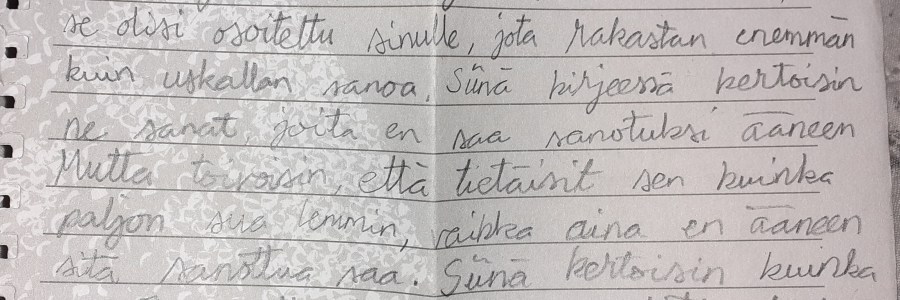 se olisi osoitettu sinulle, jota rakastan enemmän
kuin uskallan sanoa. Siinä kirjeessä kertoisin
ne sanat, joita en saa sanotuksi ääneen
Mutta toivoisin, että tietäisit sen kuinka
paljon sua lemmin, vaikka aina en ääneen
sitä sanottua saa. Siinä kertoisin kuinka